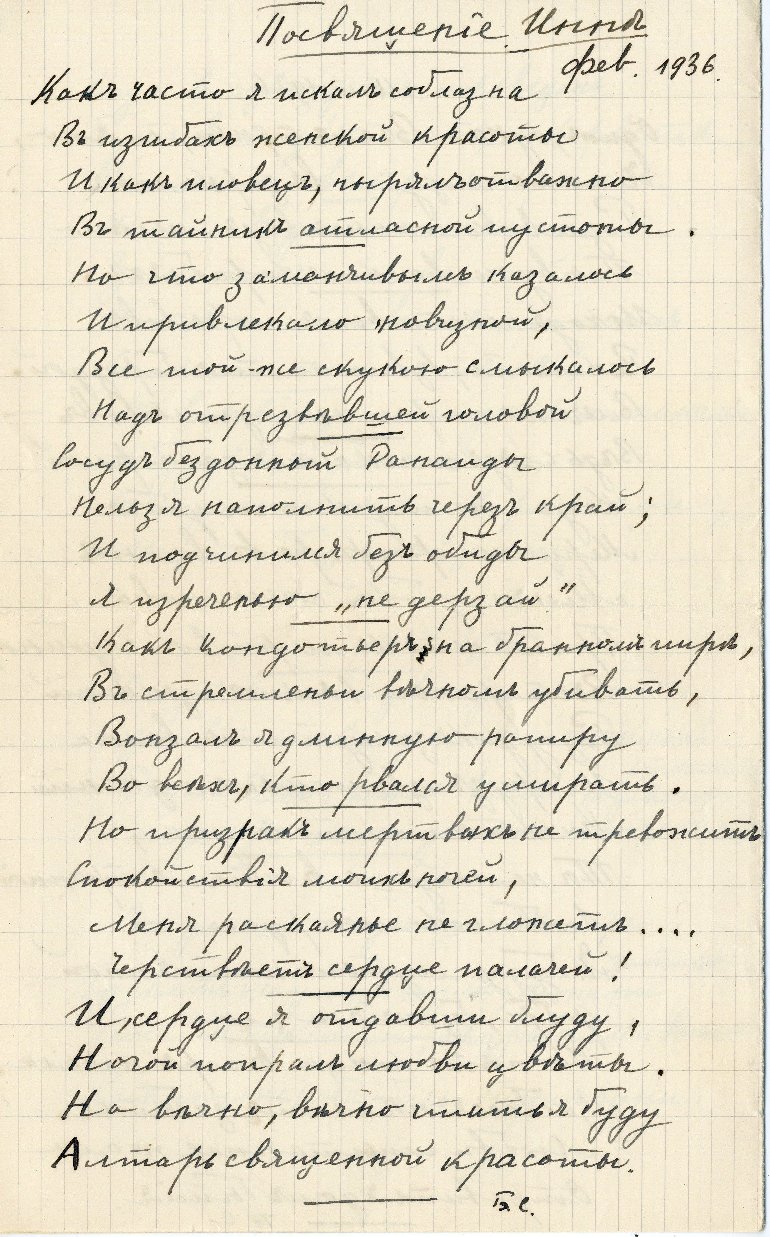 Посвященіе Иннѣ
Фев. 1936.
Какъ часто я искалъ соблазна
Въ изгибахъ женской красоты
И какъ пловецъ, нырялъ отважно
Въ тайникъ атласной пустоты.
Но что заманчивымъ казалось
И привлекало новизной,
Все той-же скукою смыкалось
Надъ отрезвѣвшей головой
Сосудъ бездонный Данаиды
Нельзя наполнить черезъ край;
И подчинился безъ обиды
Я изреченью „не дерзай"
Какъ Кондотьеръ на бранномъ пирѣ,
Въ стремленьи вѣчномъ убивать,
Вонзалъ я длинную рапиру
Во всѣхъ, кто рвался умирать.
Но призракъ мертвыхъ не тревожитъ
Спокойствія моихъ ночей,
Меня раскаянье не гложетъ....
Черствѣетъ сердце палачей!
И, сердце я отдавши блуду,
Ногой попралъ любви цвѣты.
Но вѣчно, вѣчно чтить я буду
Алтарь священной красоты.